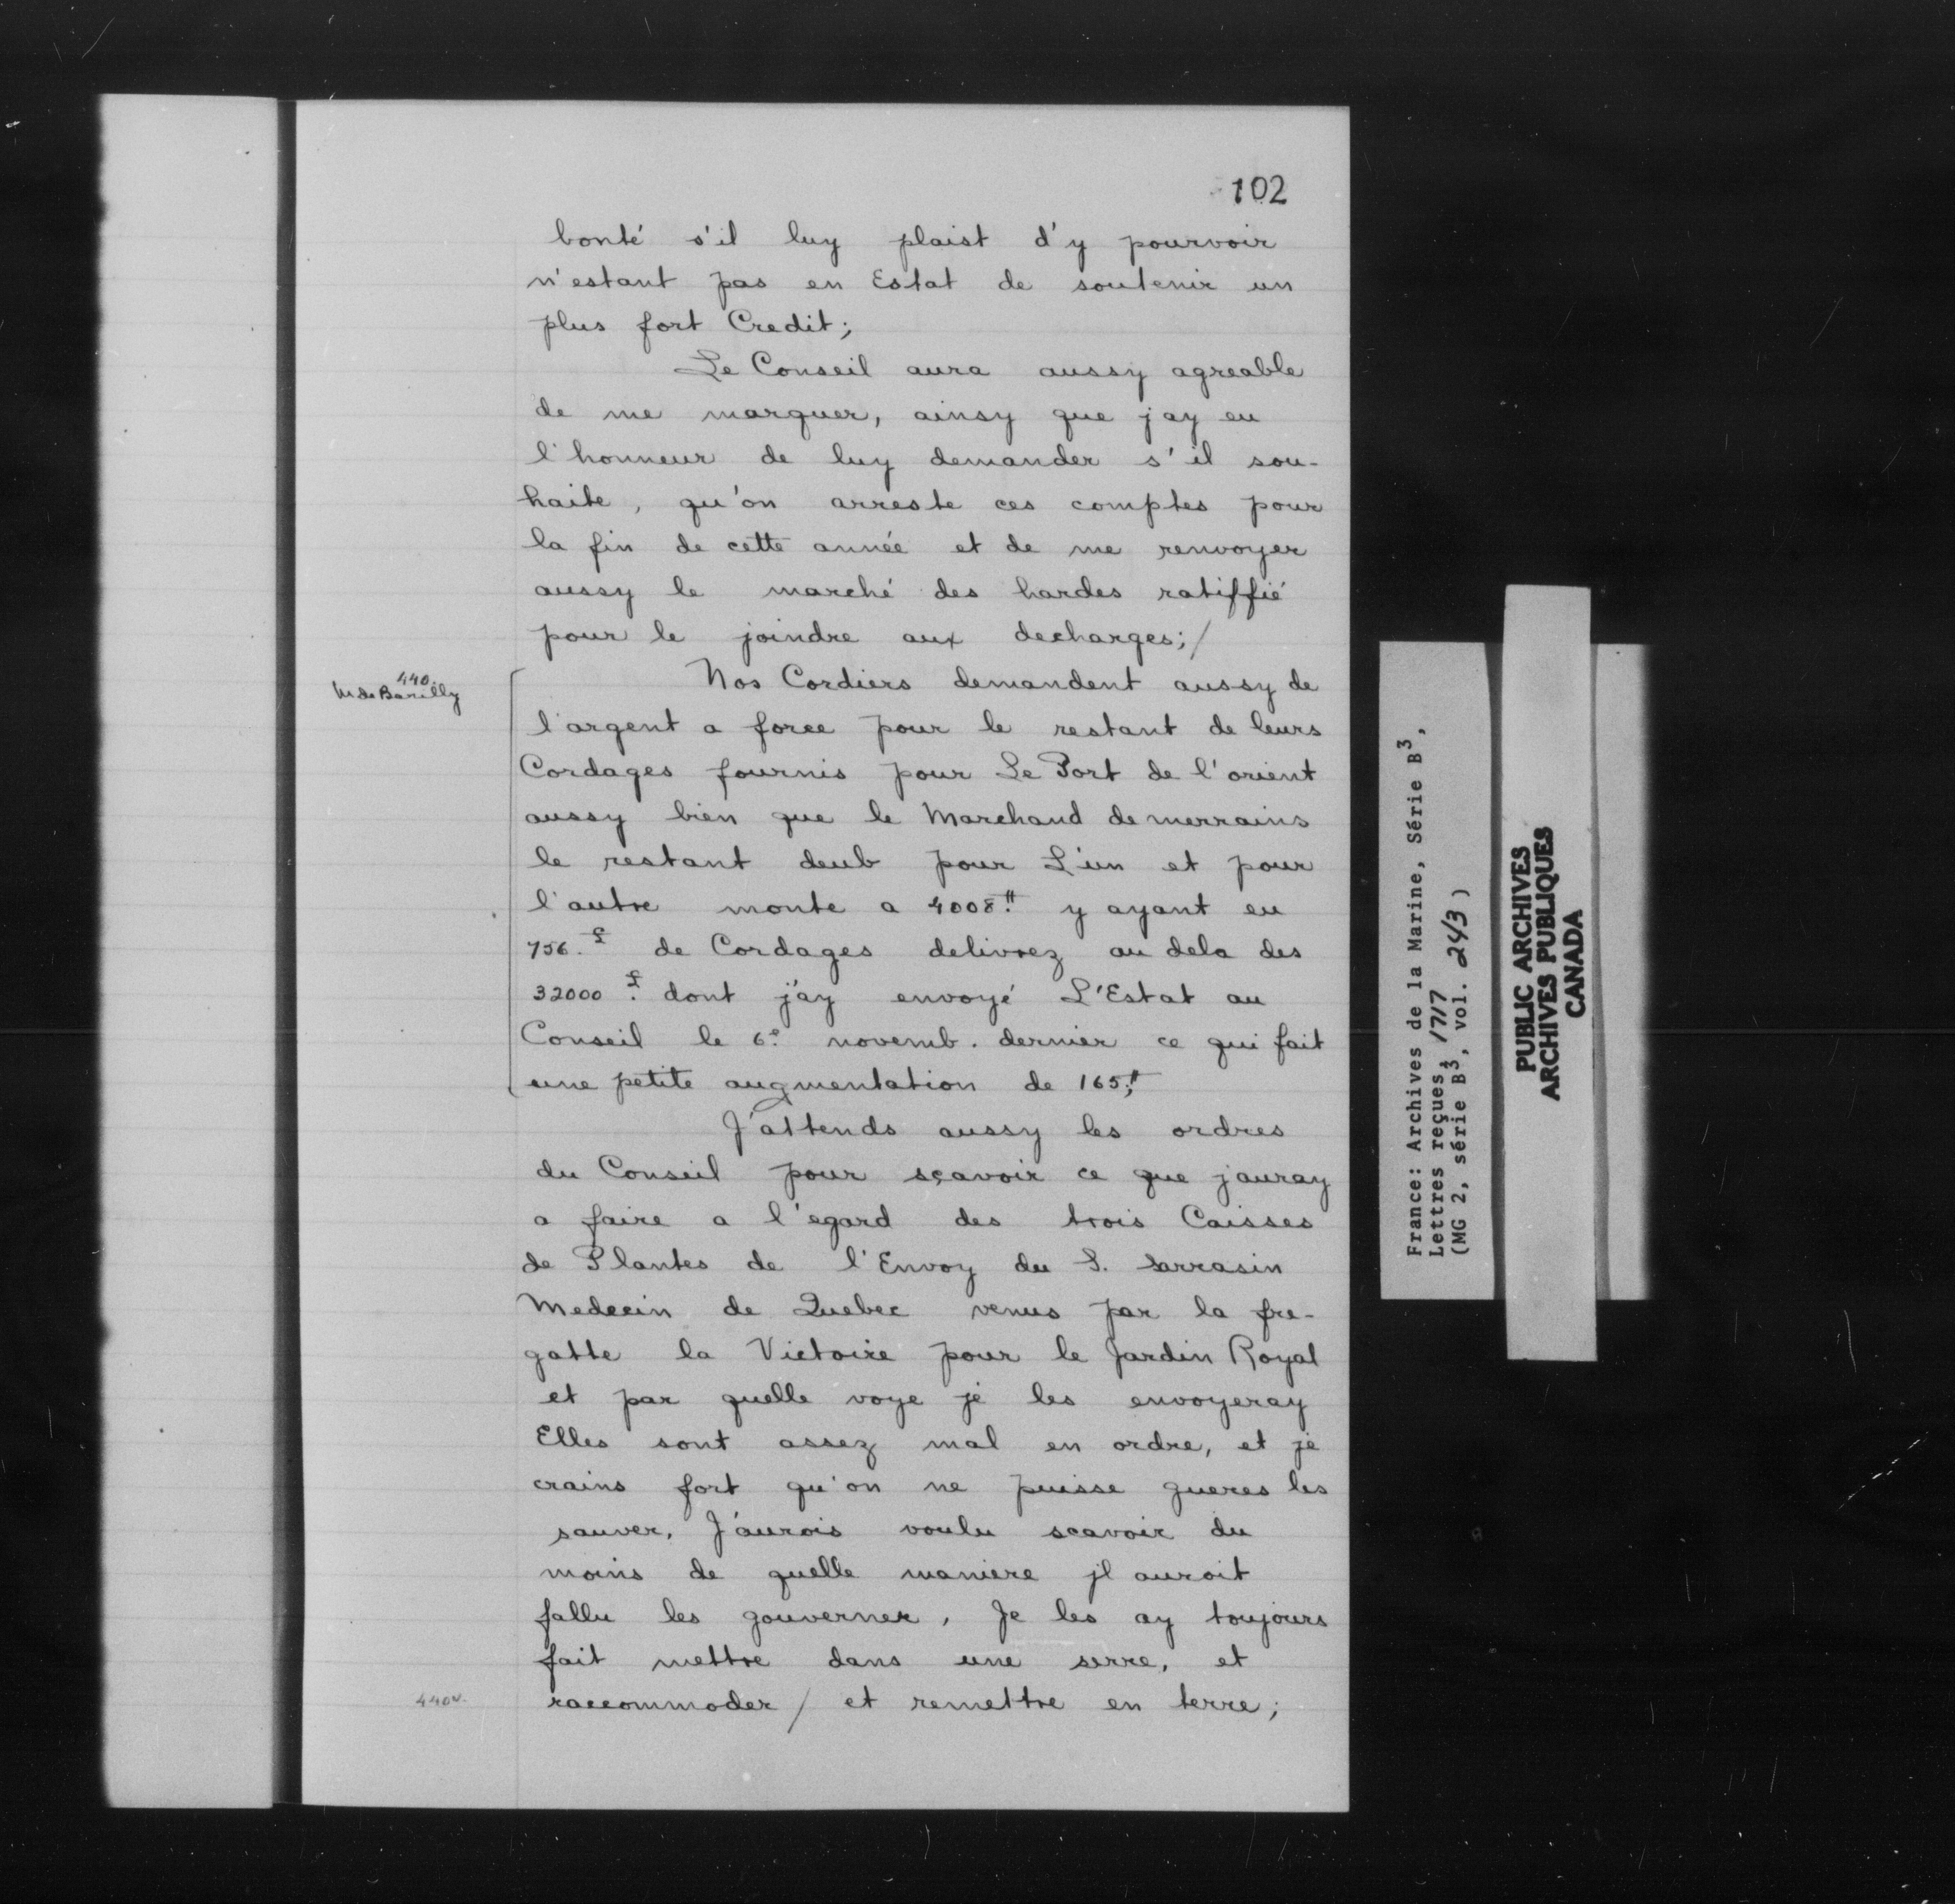 102
bonté s'il luy plaist d'y pourvoir
n'estant pas en Estat de soutenir un
plus fort Credit;
Le Conseil aura aussy agreable
de me marquer, ainsy que jay eu
l'honneur de luy demander s'il sou-
haite, qu'on arreste ces comptes pour
la fin de cette année et de me renvoyer
aussy le marché des hardes ratiffié
pour le joindre aux decharges;/
440.
M de Barilly
Nos Cordiers demandent aussy de
l'argent a force pour le restant de leurs
Cordages fournis pour Le Port de l'orient
aussy bien que le Marchand de merrains
le restant deub pour L'un et pour
l'autre monte a 4008.# y ayant eu
756.£ de Cordages delivrez au dela des
32000.£ dont j'ay envoyé L'Estat au
Conseil le 6.e novemb. dernier ce qui fait
une petite augmentation de 165;#
J'attends aussy les ordres
du Conseil pour sçavoir ce que jauray
a faire a l'egard des trois Caisses
de Plantes de l'Envoy du S. Sarrasin
Medecin de Quebec venus par la fre-
gatte la Victoire pour le Jardin Royal
et par quelle voye je les envoyeray
Elles sont assez mal en ordre, et je
crains fort qu'on ne puisse gueres les
sauver, J'aurois voulu scavoir du
moins de quelle maniere jl auroit
fallu les gouverner, Je les ay toujours
fait mettre dans une serre, et
440v.
raccommoder / et remettre en terre;
France: Archives de la Marine, Série B3,
Lettres reçues, 1717
(MG 2, série B3, vol. 243)
PUBLIC ARCHIVES
ARCHIVES PUBLIQUES
CANADA